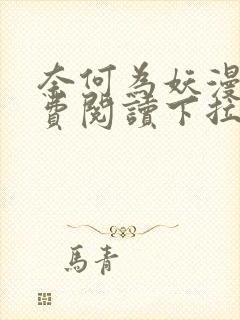 奈何為妖漫
費閱讀下拉
馬青